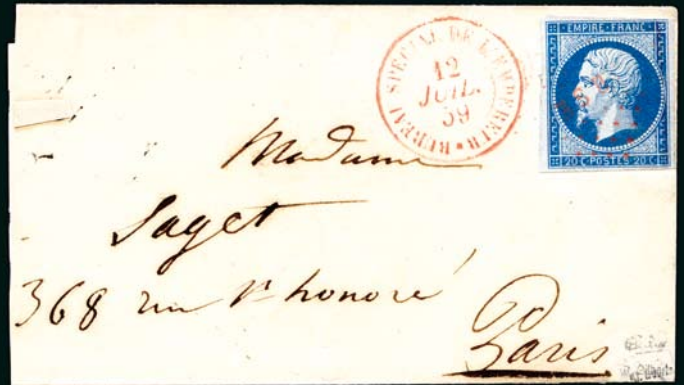 BUREAU SPÉCIAL DE L'EMPEREUR
12
JUIL.
59
EMPIRE·FRANC·
20 C POSTES 20 C
Madame
Saget
368 rue St honoré
Paris